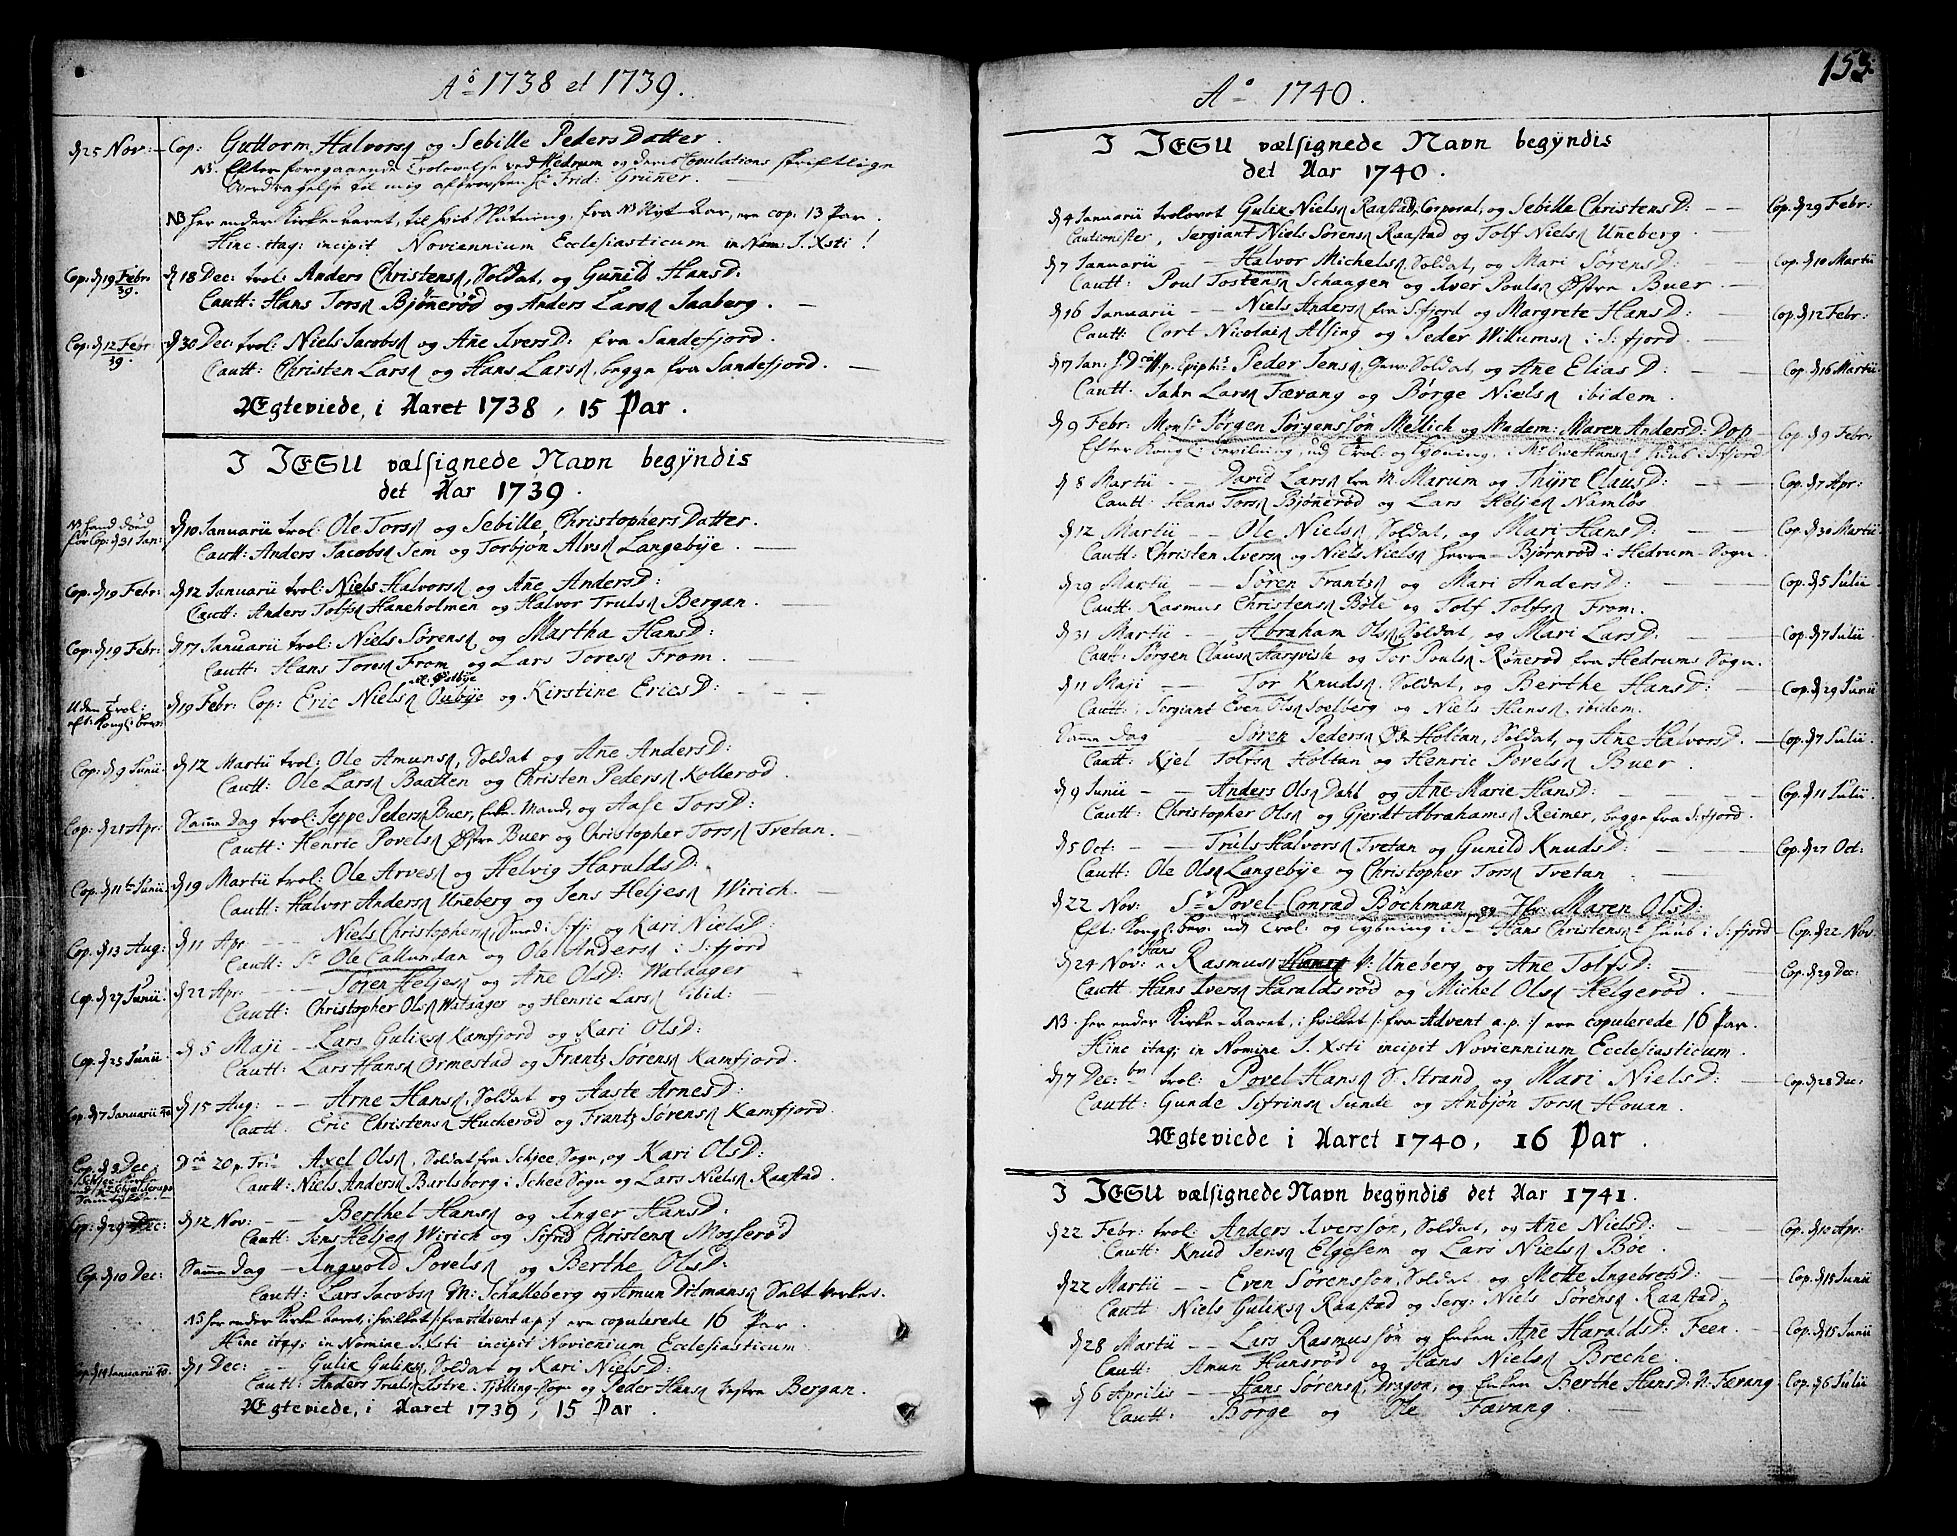 Aº 1738 et 1739.
d 25 Nov: Cop: Guttorm Halvorsn og Sebille Peders Datter.
NB. Efter foregaaende Trolovelse ved Hedrum og deris Copulations skriftlige
Overdragelse til mig af Sr Frid: Grüner.
NB her ender Kirke-Aaret, til hvis Slutning, fra Nyt-Aar, ere cop: 13 Par.
Hinc itaq; incipit Noviennium Ecclesiasticum in Nom: J. Xsti!
Cop: d 19 Febr: 39. d 18 Dec: trol: Anders Christensn, Soldat, og Guñild HansD:
Cautt: Hans Torsn Bjönerød og Anders Larsn Saaberg.
Cop: d 12 Febr: 39. d 30 Dec: trol: Niels Jacobsn og Añe IversD: fra Sandefjord.
Cautt: Christen Larsn og Hans Larsn, begge fra Sandefjord.
Ægteviede, i Aaret 1738, 15 Par.
I JESU vælsignede Navn begÿndis
det Aar 1739.
NB hand døde før Cop: d 31 Jan: d 10 Januarii trol: Ole Torsn og Sebille Christophers Datter.
Cautt: Anders Jacobsn Sem og Torbjøn Alvsn Langebÿe.
Cop: d 19 Febr: d 12 Januarii trol: Niels Halvorsn og Añe AndersD:
Cautt: Anders Tolfsn Haneholmen og Halvor Trulsn Bergan.
Cop: d 19 Febr: d 17 Januarii trol: Niels Sørensn og Martha HansD:
Cautt: Hans Toresn From og Lars Toresn From.
Uden Trol: eft: Kongl: bev: d 19 Febr: Cop: Eric Nielsn Østbÿe og Kirstine EricsD:
Cop: d 9 Junii. d 12 Martii trol: Ole Amunsn, Soldat og Añe AndersD:
Cautt: Ole Larsn Baatten og Christen Pedersn Kollerød.
Cop: d 21 Apr: Samme Dag trol: Jeppe Pedersn Buer, Enke-Mand, og Aase TorsD:
Cautt: Henric Povelsn Østre Buer og Christopher Torsn Tvetan.
Cop: d 11te Junii. d 19 Martii trol: Ole Arvesn og Helvig HaraldsD:
Cautt: Halvor Andersn Uneberg og Jens Heljesn Wirich.
Cop: d 13 Aug: d 11 Apr - - Niels Christophersn, Smed i S:fj: og Kari NielsD:
Cautt: Sr Ole Callundan og Ole Andersn i S:fjord
Cop: d 27 Junii d 22 Apr: Toren Heljesn og Añe OlsD: Wataager
Cautt: Christopher Olsn Wataager og Henric Larsn ibid:
Cop: d 25 Junii. d 5 Maji - Lars Guliksn Kamfjord og Kari OlsD:
Cautt: Lars Hansn Ormestad og Frantz Sørensn Kamfjord.
Cop: d 7 Januarii 40 d 15 Aug: - Arne Hansn, Soldat og Aaste ArnesD:
Cautt: Eric Christensn Hucherød og Frantz Sørensn Kamfjord.
Cop: d 3 Dec: Dca 20 p. Tri: Axel Olsn, Soldat fra Schjee Sogn, og Kari OlsD:
Cautt: Niels Andersn Barlsborg i Schee Sogn og Lars Nielsn Raastad
Cop: d 29 Dec: d 12 Nov: - - Berthel Hansn og Inger HansD:
Cautt: Jens Heljesn Wirich og Sifrid Christensn Mosserød
Cop: d 10 Dec: Samme Dag - Ingvold Povelsn og Berthe OlsD:
Cautt: Lars Jacobsn M: Schalleberg og Amun Ditmansn Salt-verket.
NB her ender Kirke-Aaret, i hvilket /: fra Advent a.p :/ ere copulerede 16 Par.
Hinc itaq; in Nomine J. Xsti incipit Noviennium Ecclesiasticum
Cop: d 14 Januarii 40. d 1 Dec: - - Gulik Guliksn, Soldat og Kari NielsD:
Cautt: Anders Trulsn Istre i Tjølling-Sogn og Peder Hansn Bergan.
Ægteviede, i Aaret 1739, 15 Par.
153.
Aº 1740.
I JESU vælsignede Navn begÿndis
det Aar 1740.
d 4 Januarii trolovet Gulik Nielsn Raastad, Corporal, og Sebille ChristensD: - - Cop: d 29 Febr:
Cautionister, Sergiant Niels Sørensn Raastad og Tolf Nielsn Uneberg.
d 7 Januarii - - Halvor Michelsn, Soldat, og Mari SørensD: Cop: d 10 Martii
Cautt: Poul Tostensn Schaagen og Iver Poulsn Østre Buer.
d 16 Januarii - - Niels Andersn fra S:fjord og Margrete HansD: Cop: d 12 Febr:
Cautt: Cort Nicolaisn Alsing og Peder Willumsn i S:fjord.
d 7 Jan: p. Epiph: Peder Jensn, Gev: Soldat, og Añe EliasD: Cop: d 16 Martii
Cautt. Jahn Larsn Fævang og Børge Nielsn ibidem.
d 9 Febr: Monsr Jørgen Jørgenssøn Mellich og Madem: Maren AndersD: Dorp Cop: d 9 Febr:
Efter Kongl: bevilning, ud Trol: og Lÿsning, i Mr Owe Hansns huus i S:fjord
d 8 Martii - - David Larsn fra M. Marum og Thÿre ClausD: Cop: d 7 Apr:
Cautt: Hans Torsn Bjønerød og Lars Heljesn Namløs
d 12 Martii - - Ole Nielsn, Soldat, og Mari HansD: Cop: d 30 Martii
Cautt: Christen Iversn og Niels Nielsn Herre-Bjørnrød i Hedrum-Sogn.
d 29 Martii - - Søren Frantsn og Mari AndersD: Cop: d 5 Julii
Cautt: Rasmus Christensn Bøle og Tolf Tolfsn From.
d 31 Martii - - Abraham Olsn, Soldat, og Mari LarsD: Cop: d 7 Julii
Cautt: Jørgen Clausn Hasqvisle og Tor Poulsn Rønerød fra Hedrums Sogn.
d 11 Maji - - Tor Knudsn, Soldat, og Berthe HansD: Cop: d 29 Junii
Cautt: Sergiant Even Olsn Soelberg og Niels Hansn ibidem.
Samme Dag - Søren Pedersn Øde Holtan, Soldat, og Añe HalvorsD. Cop: d 7 Julii
Cautt: Kjel Tolfsn Holtan og Henric Povelsn Buer.
d 9 Junii - - Anders Olsn Dahl og Añe Marie HansD: Cop: d 11 Julii
Cautt: Christopher Olsn og Gjerdt Abrahamsn Reimer, begge fra S:fjord.
d 5 Oct: - - Truls Halvorsn Tvetan og Gunild KnudsD: Cop: d 27 Oct:
Cautt: Ole Olsn Langebÿe og Christopher Torsn Tvetan
d 22 Nov: Sr Povel Conrad Böchman og Maren OlsD:
Eft: Kongl: bev: ud Trol: og Lÿsning i Sr Hans Christensns huus i S:fjord Cop: d 22 Nov:
d 24 Nov: - Rasmus Hans V: Uneberg og Añe TolfsD: Cop: d 29 Dec:
Cautt: Hans Iversn Haraldsrød og Michel Olsn Helgerød.
NB. her ender Kirke-Aaret, i hvilket /: fra Advent a.p. :/ ere copulerede 16 Par.
Hinc itaq; in Nomine J. Xsti incipit Noviennium Ecclesiasticum.
d 7 Dec:br trol: Povel Hansn S. Strand og Mari NielsD: Cop: d 28 Dec:
Cautt: Gunde Sifrinsn Sunde og Anbjøn Torsn Hovan.
Ægteviede i Aaret 1740, 16 Par.
I JESU vælsignede Navn begÿndis det Aar 1741.
d 22 Febr: trol: Anders Iverssøn, Soldat, og Añe NielsD: Cop: d 10 Apr:
Cautt: Knud Jensn Elgesem og Lars Nielsn Bøe.
d 22 Martii - - Even Sørenssøn, Soldat og Mette IngebretsD: Cop: d 15 Junii
Cautt: Niels Guliksn Raastad og Serg: Niels Sørensn Raastad,
d 28 Martii - Lars Rasmussøn og Enken Añe HaraldsD: Feen. Cop: d 15 Junii
Cautt: Amun Hansrød og Hans Nielsn Breche.
d 6 Aprilis - Hans Sørensn, Dragon, og Enken Berthe HansD: N. Fævang Cop: d 6 Julii
Cautt: Børge og Ole Fævang.